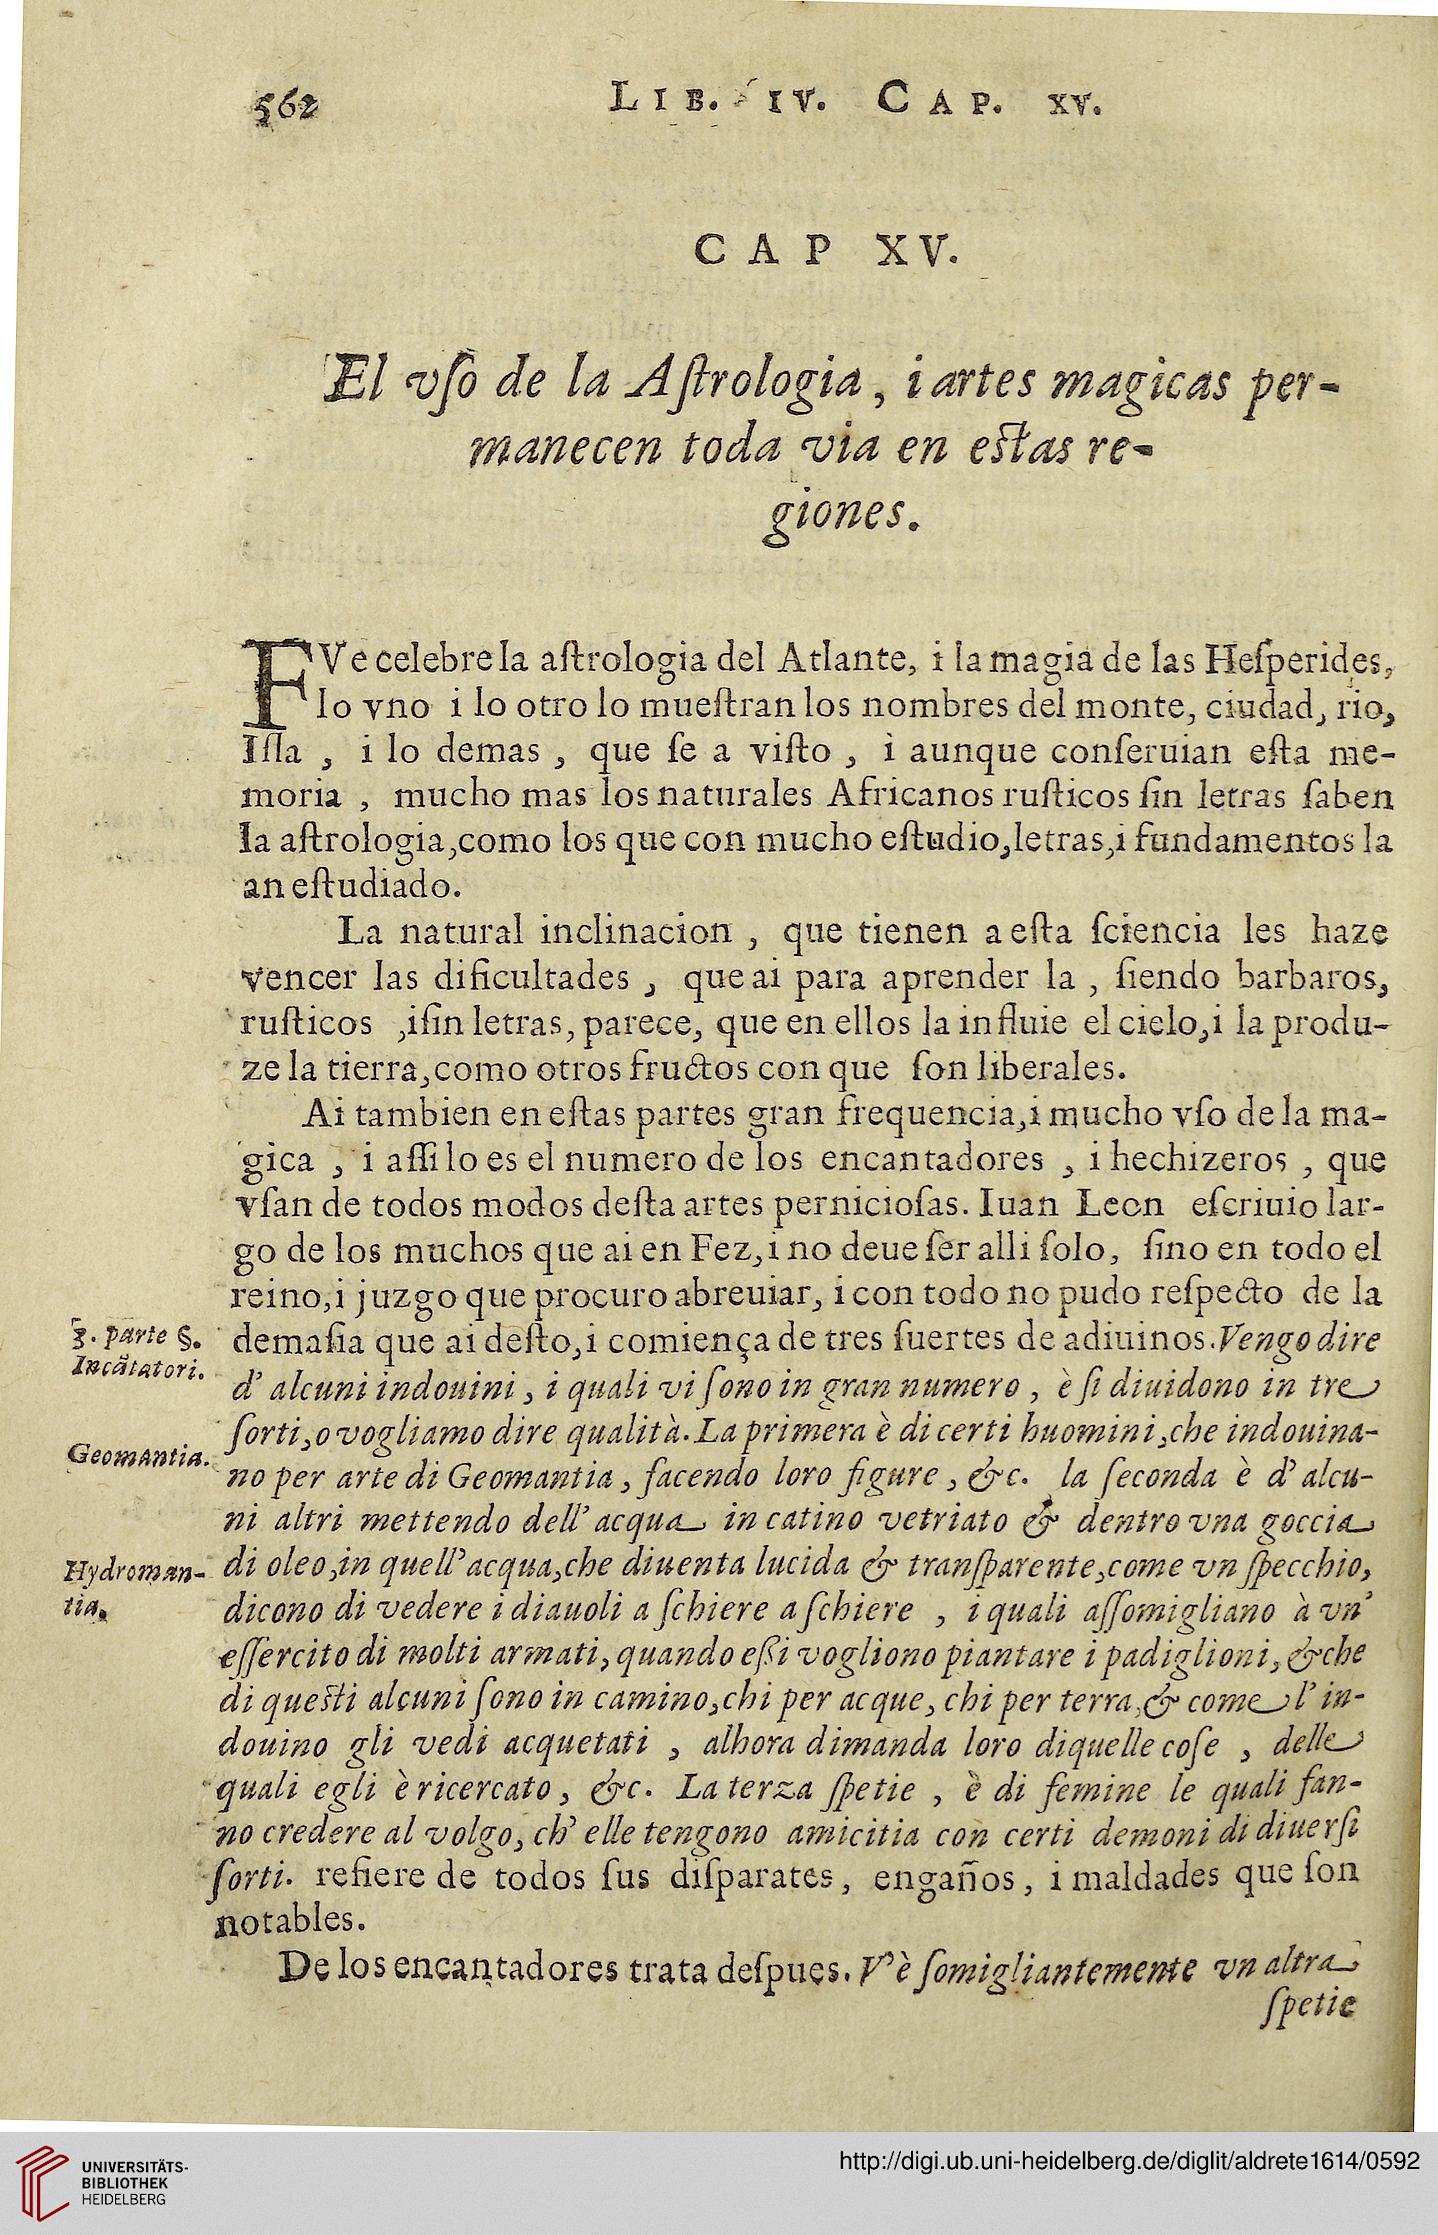 562
LIB. IV. CAP. XV.
CAP XV.
El vſo de la Aſtrologia, i artes magicas per-
manecen toda via en eſtas re-
giones.
FVe celebre la aſtrologia del Atlante, i la magia de las Heſperides,
lo vno i lo otro lo mueſtran los nombres del monte, ciudad, rio,
Iſla, i lo demas, que ſe a viſto, ì aunque conſeruian eſta me-
moria, mucho mas los naturales Africanos ruſticos ſin letras ſaben
la aſtrologia, como los que con mucho eſtudio, letras, i fundamentos la
an eſtudiado.
La natural inclinacion, que tienen a eſta ſciencia les haze
vencer las dificultades, que ai para aprender la, ſiendo barbaros,
ruſticos, i ſin letras, parece, que en ellos la influie el cielo, i la produ-
ze la tierra, como otros fructos con que ſon liberales.
Ai tambien en eſtas partes gran frequencia, i mucho vſo de la ma-
gica, i aſſi lo es el numero de los encantadores, i hechizeros, que
vſan de todos modos deſta artes pernicioſas. Iuan Leon eſcriuio lar-
go de los muchos que ai en Fez, i no deue ſer alli ſolo, ſino en todo el
reino, i juzgo que procuro abreuiar, i con todo no pudo reſpecto de la
3. parte §. Incãtatori.
demaſia que ai deſto, i comiença de tres ſuertes de adiuinos. Vengo dire
d' alcuni indouini, i quali vi ſono in gran numero, è ſi diuidono in tre
ſorti, o vogliamo dire qualità. La primera è di certi huomini, che indouina-
Geomantia.
no per arte di Geomantia, facendo loro figure, &c. la ſeconda è d' alcu-
ni altri mettendo dell' acqua in catino vetriato & dentro vna goccia
Hydroman-
tia.
di oleo, in quell' acqua, che diuenta lucida & tranſparente, come vn ſpecchio,
dicono di vedere i diauoli a ſchiere a ſchiere, i quali aſſomigliano à vn'
eſſercito di molti armati, quando eſsi vogliono piantare i padiglioni, & che
di queſti alcuni ſono in camino, chi per acque, chi per terra, & come l' in-
douino gli vedi acquetati, alhora dimanda loro di quelle coſe, delle
quali egli è ricercato, &c. La terza ſpetie, è di femine le quali fan-
no credere al volgo, ch' elle tengono amicitia con certi demoni di diuerſi
ſorti. refiere de todos ſus diſparates, engaños, i maldades que ſon
notables.
De los encantadores trata deſpues. V' è ſomigliantemente vn altra
ſpetie
UNIVERSITÄTS-
BIBLIOTHEK
HEIDELBERG
http://digi.ub.uni-heidelberg.de/diglit/aldrete1614/0592